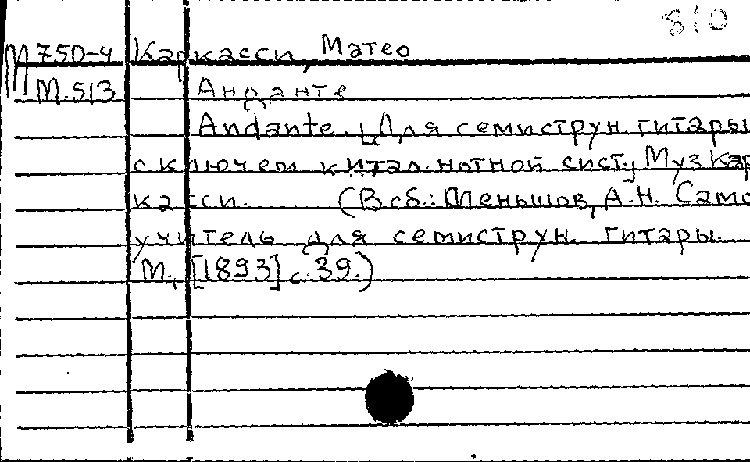 810
М 750-4 Каркасси, Матео
М.513 Анданте
Andante. [Для семиструн. гитары
с ключем к итал. нотной сист.] Муз Кар
касси. (В сб.: Меньшов, А.Н. Само
учитель для семиструн. гитары.
М., [1893] с. 39.)